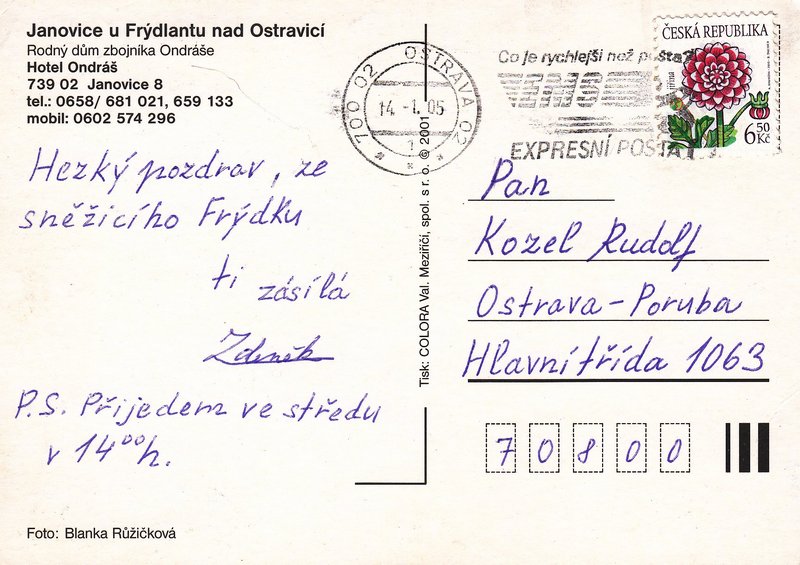 Janovice u Frýdlantu nad Ostravicí
Rodný dům zbojníka Ondráše
Hotel Ondráš
739 02 Janovice 8
tel.: 0658/ 681 021, 659 133
mobil: 0602 574 296
700 02 OSTRAVA 02
14.-1.05
1
Co je rychlejší než pošta?
EXPRESNÍ POŠTA
ČESKÁ REPUBLIKA
6 50 Kč
Hezký pozdrav, ze
sněžicího Frýdku
ti zásílá
Zdeněk
P.S. Přijedem ve středu
v 14 00 h.
Tisk: COLORA Val. Meziříčí, spol. s r. o. © 2001
Pan
Kozel Rudolf
Ostrava-Poruba
Hlavní třída 1063
7 0 8 0 0
Foto: Blanka Růžičková